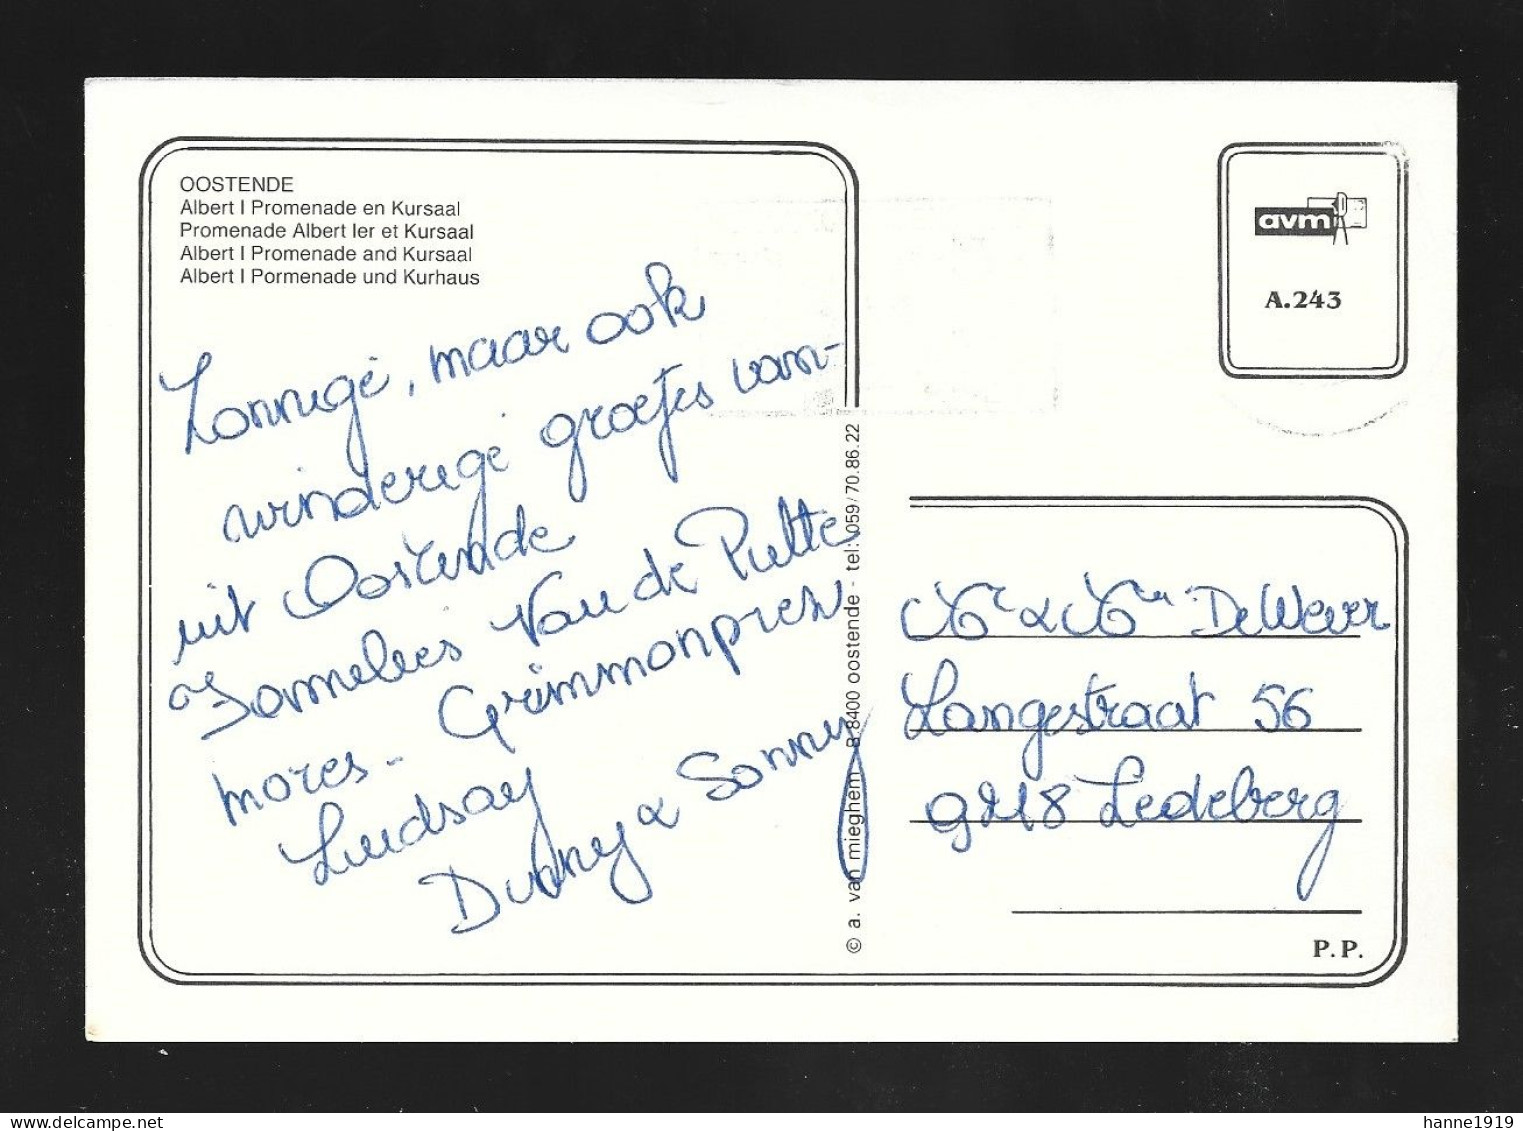 OOSTENDE
Albert I Promenade en Kursaal
Promenade Albert Ier et Kursaal
Albert I Promenade and Kursaal
Albert I Pormenade und Kurhaus
Zonnige, maar ook
winderige groetjes van-
uit Oostende
Van de Putte
Grimmonprez
Lindsay
&
avm
A.243
© a. van mieghem B 8400 oostende - tel: 059/70.86.22
Mr & Mw De Wever
Langestraat 56
Ledeberg
P.P.
delcampe.net
hanne1919